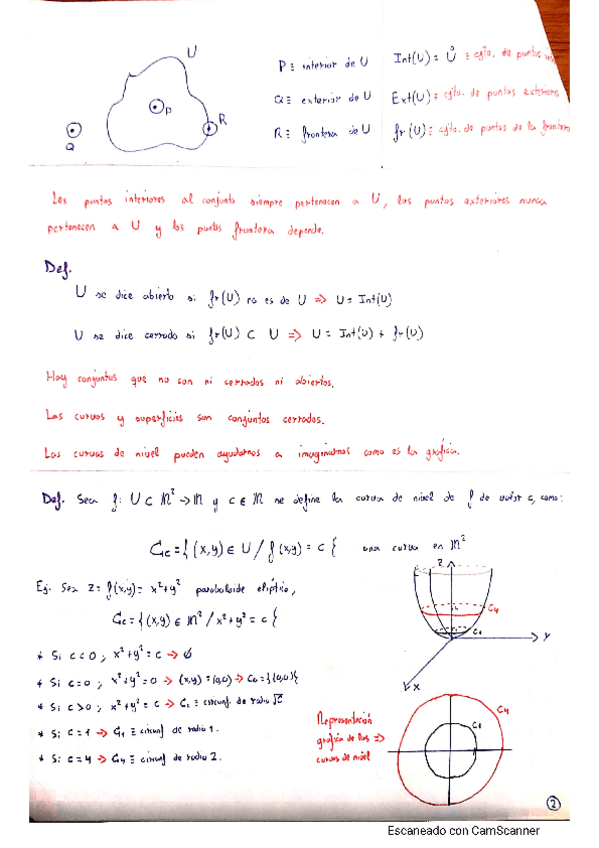 U
P
R
Q
P ≡ interior de U
Q ≡ exterior de U
R ≡ frontera de U
Int(U) = Ů ≡ cjto. de puntos
Ext(U) ≡ cjto. de puntos exteriores
fr(U) ≡ cjto. de puntos de la frontera
Los puntos interiores al conjunto siempre pertenecen a U, los puntos exteriores nunca
pertenecen a U y los puntos frontera depende.
Def.
U se dice abierto si fr(U) no es de U => U = Int(U)
U se dice cerrado si fr(U) ⊂ U => U = Int(U) + fr(U)
Hay conjuntos que no son ni cerrados ni abiertos.
Las curvas y superficies son conjuntos cerrados.
Las curvas de nivel pueden ayudarnos a imaginarnos como es la gráfica.
Def. Sea f: U ⊂ ℝ² → ℝ y c ∈ ℝ se define la curva de nivel de f de valor c, como:
Cc = {(x,y) ∈ U / f(x,y) = c} una curva en ℝ²
Ej. Sea z = f(x,y) = x²+y² paraboloide elíptico,
Cc = {(x,y) ∈ ℝ² / x²+y² = c}
* Si c<0; x²+y² = c → ∅
* Si c=0; x²+y² = 0 → (x,y) = (0,0) → C₀ = {(0,0)}
* Si c>0; x²+y² = c → Cc ≡ circunf. de radio √c
* Si c=1 → C₁ ≡ circunf. de radio 1.
* Si c=4 → C₄ ≡ circunf. de radio 2.
z
C₄
C₁
y
x
Representación
gráfica de las =>
curvas de nivel
C₄
C₁
2
Escaneado con CamScanner